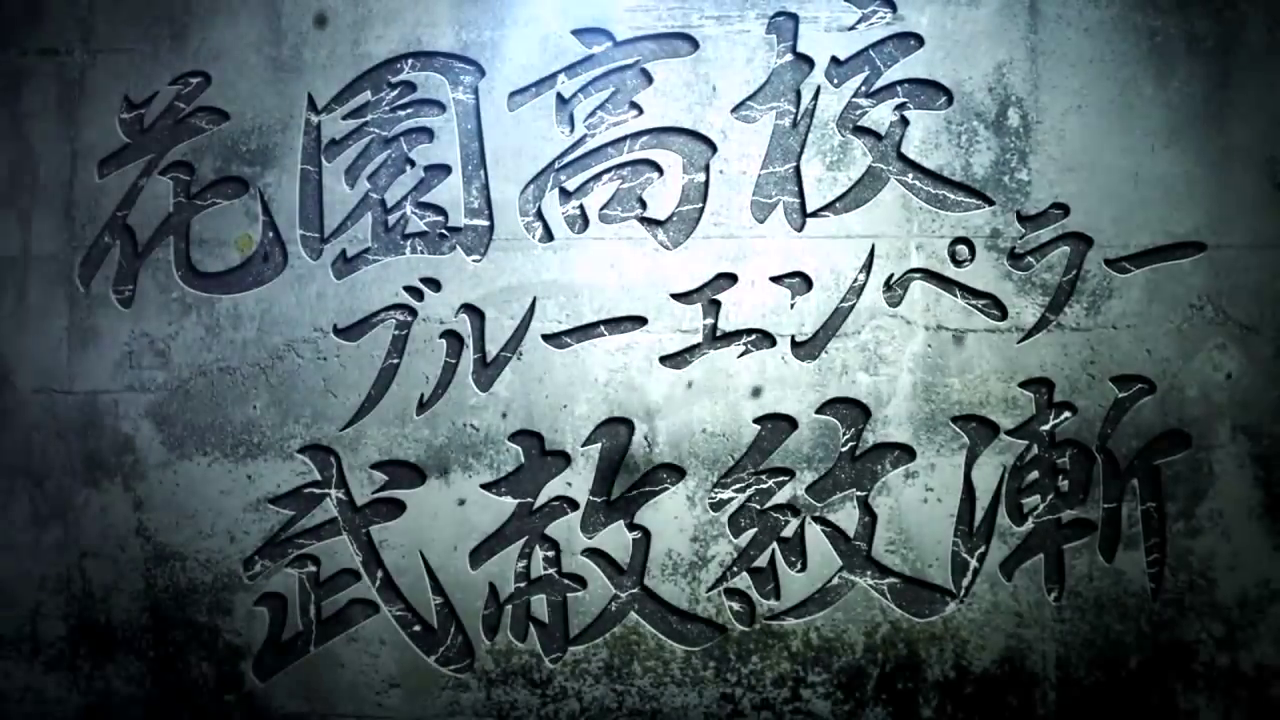 花園高校
ブルーエンペラー
武散紋漸